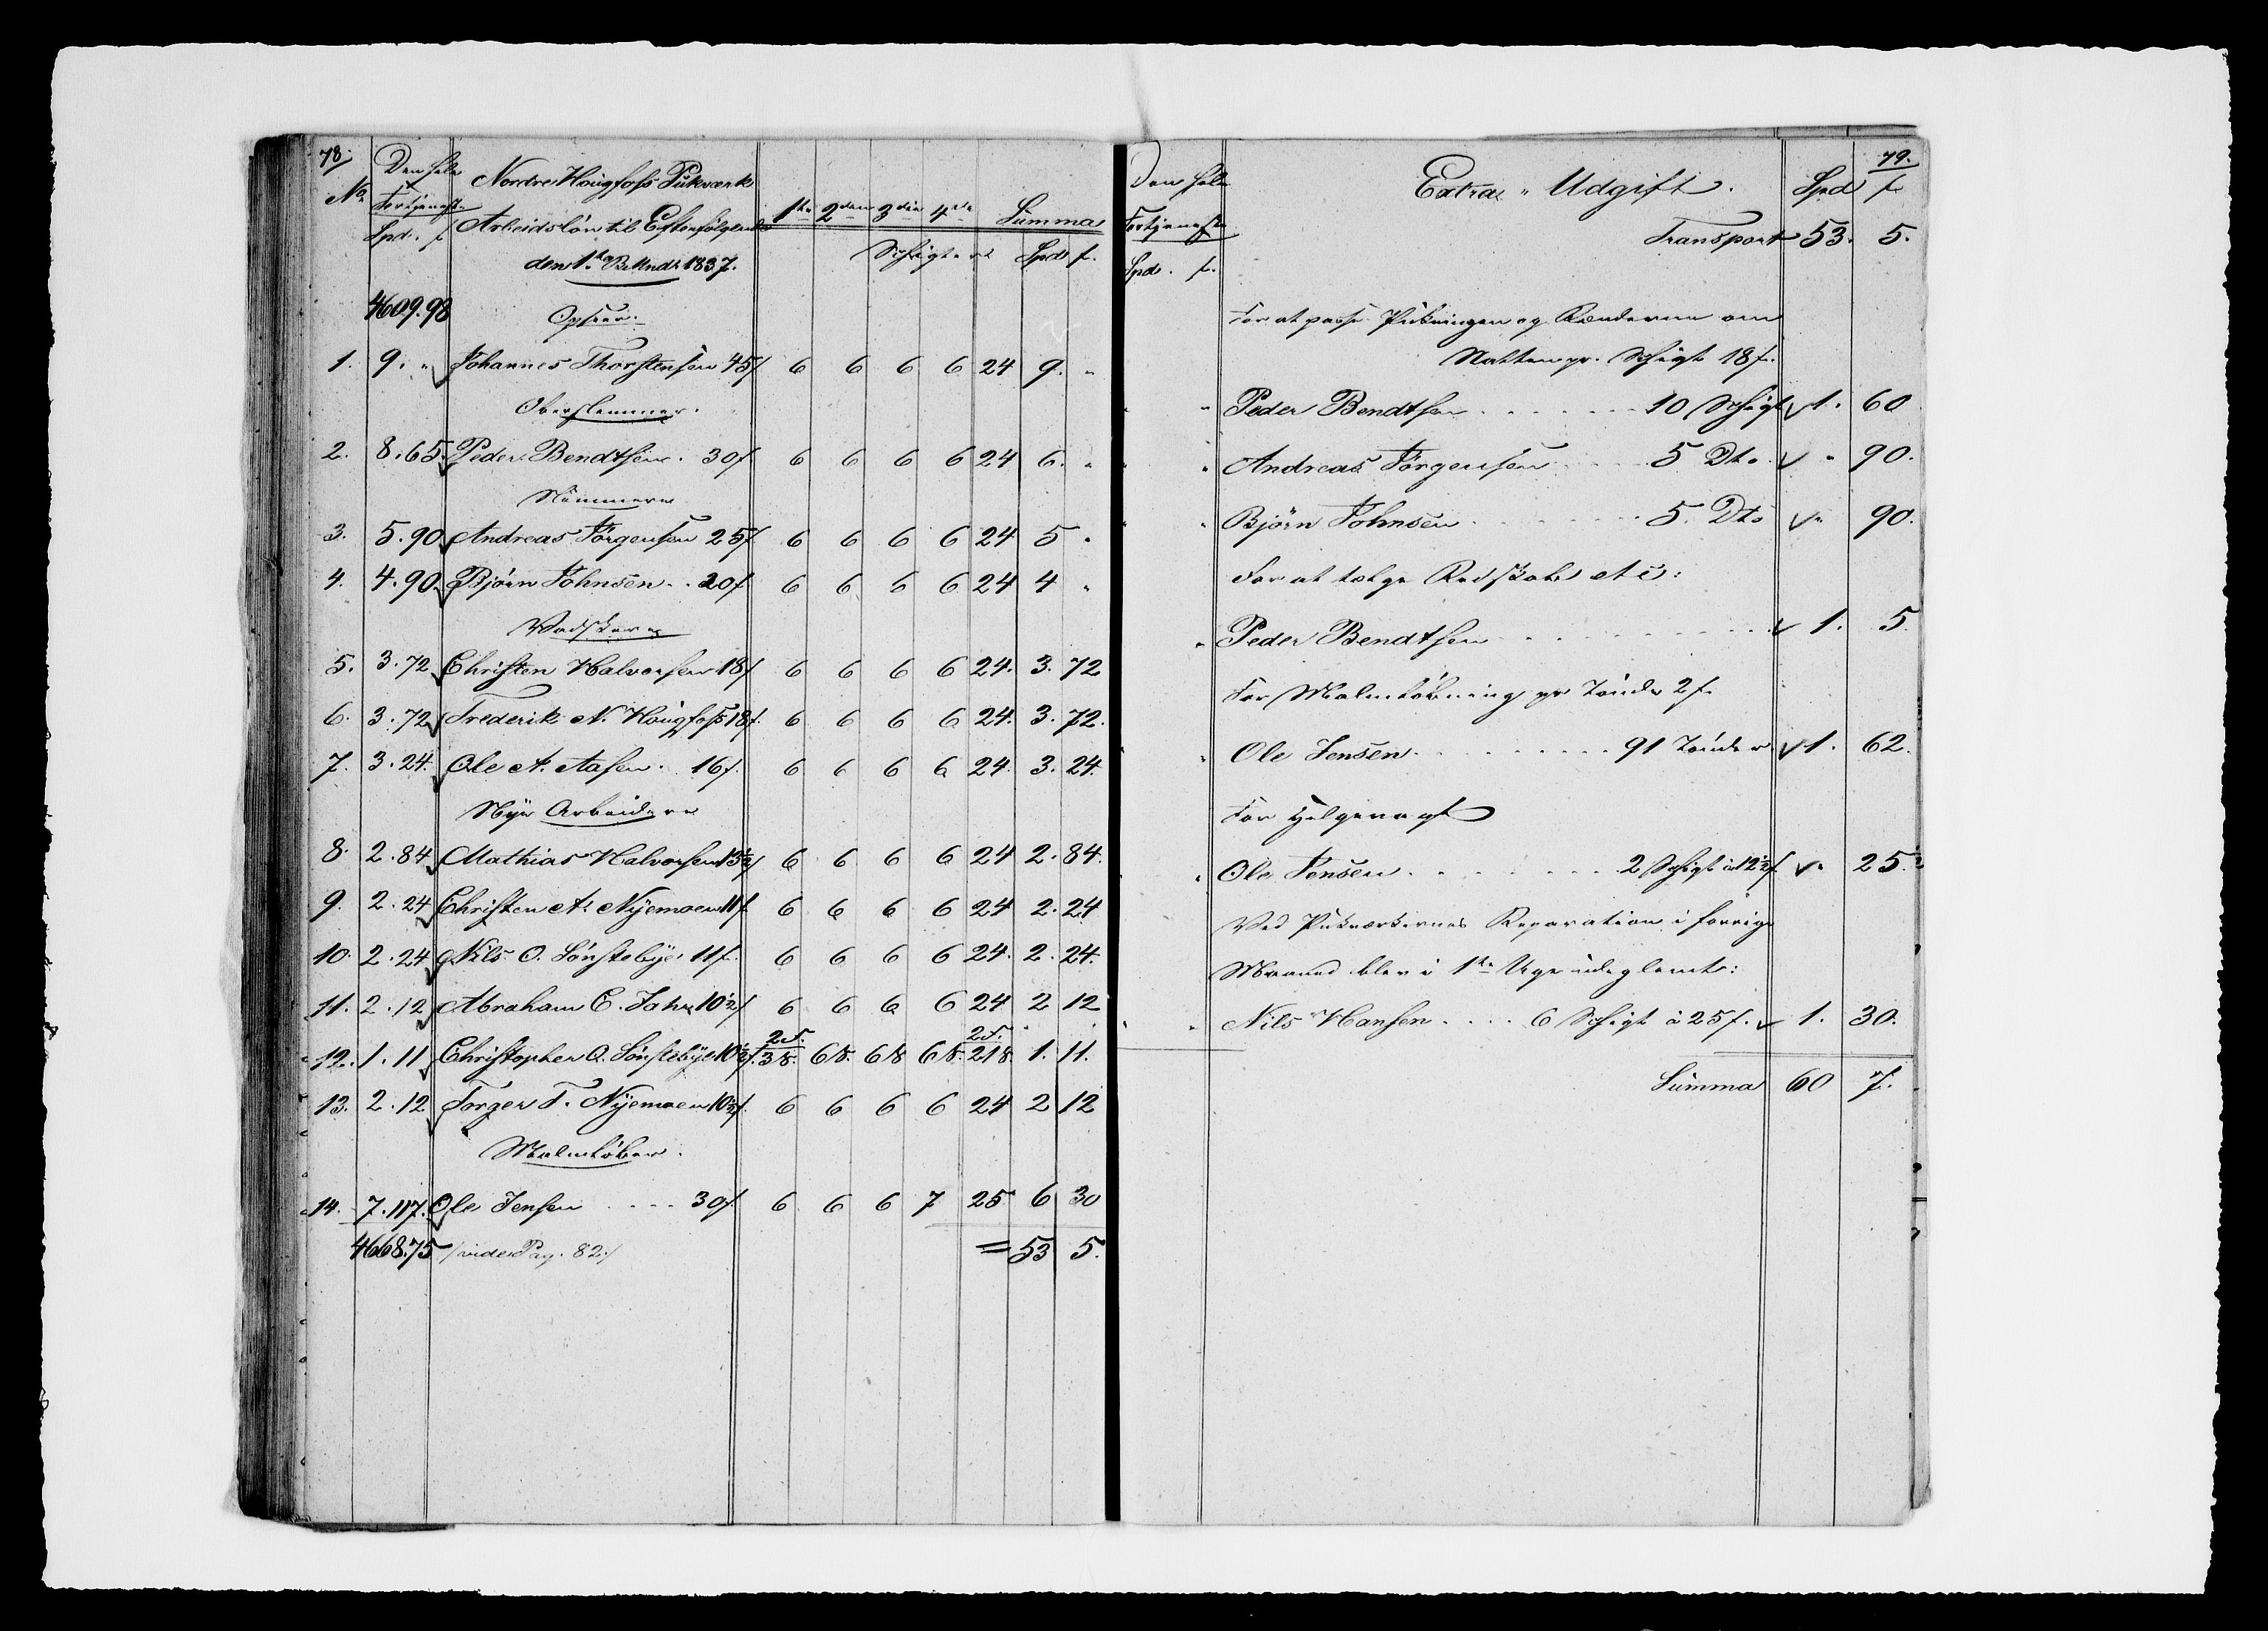 78.
No
Den hele Fortjeneste
Spd. f
Nordre Hougfoss Pukværk
Arbeidsløn til Efterfølgende
den 1ste B. Mndr 1837.
1ste 2den 3die 4de Summa
Schigter Spd f.
4609.98 Opseer.
1. 9. " Johannes Thorstensen 45f 6 6 6 6 24 9. "
Oberslemmer.
2. 8.65 Peder Bendtsen . 30f. 6 6 6 6 24 6. "
Slemmere
3. 5.90 Andreas Jørgensen 25f 6 6 6 6 24 5 "
4. 4.90 Bjørn Johnsen . . 20f 6 6 6 6 24 4 "
Vadskere
5. 3.72 Christen Halvorsen 18f 6 6 6 6 24. 3. 72
6. 3.72 Frederik N. Hougfoss 18f. 6 6 6 6 24. 3. 72.
7. 3.24. Ole A. Aasen . . 16f. 6 6 6 6 24. 3. 24.
Nye Arbeidere
8. 2.84 Mathias Halvorsen 13½f 6 6 6 6 24 2. 84.
9. 2.24 Christen A. Nyemoen 11f 6 6 6 6 24 2. 24
10. 2.24 Nils O. Sønstebye 11f. 6 6 6 6 24. 2. 24.
11. 2.12 Abraham E. Jahr 10½f 6 6 6 6 24 2 12
12. 1.11 Christopher O. Sønstebye 10½f. 2S. 38. 68. 68 68. 2S. 218 1. 11.
13. 2.12 Torger T. Nyemoen 10½f. 6 6 6 6 24 2 12
Malmkøber.
14. 7.117. Ole Jensen . . . . 30f. 6 6 6 7 25 6 30
4668.75 /vide Pag. 82/ = 53 5.
79.
Den hele Fortjeneste
Spd. f.
Extra " Udgift. Spd f
Transport 53. 5.
For at passe Pukningen og Renderne om
Natten pr. Schigt 18f.
" " Peder Bendtsen . . . . . . 10 Schigt 1. 60
" " Andreas Jørgensen . . . . 5 Dto " 90.
" " Bjørn Johnsen . . . . . . 5. Dto " 90.
For at tælge Redskab etc:
" Peder Bendtsen . . . . . . . . . . 1. 5.
For Malmkøbning pr Tønde 2f.
" Ole Jensen . . . . . . . . . 91 Tønder 1. 62.
For Helgevagt
" Ole Jensen . . . . . . . . . 2 Schigt à 12½f. " 25.
Ved Pukværkernes Reparation i forrige
Maaned blev i 1ste Uge udeglemt:
" " Nils Hansen . . . . 6 Schigt à 25f. 1. 30.
Summa 60 7.